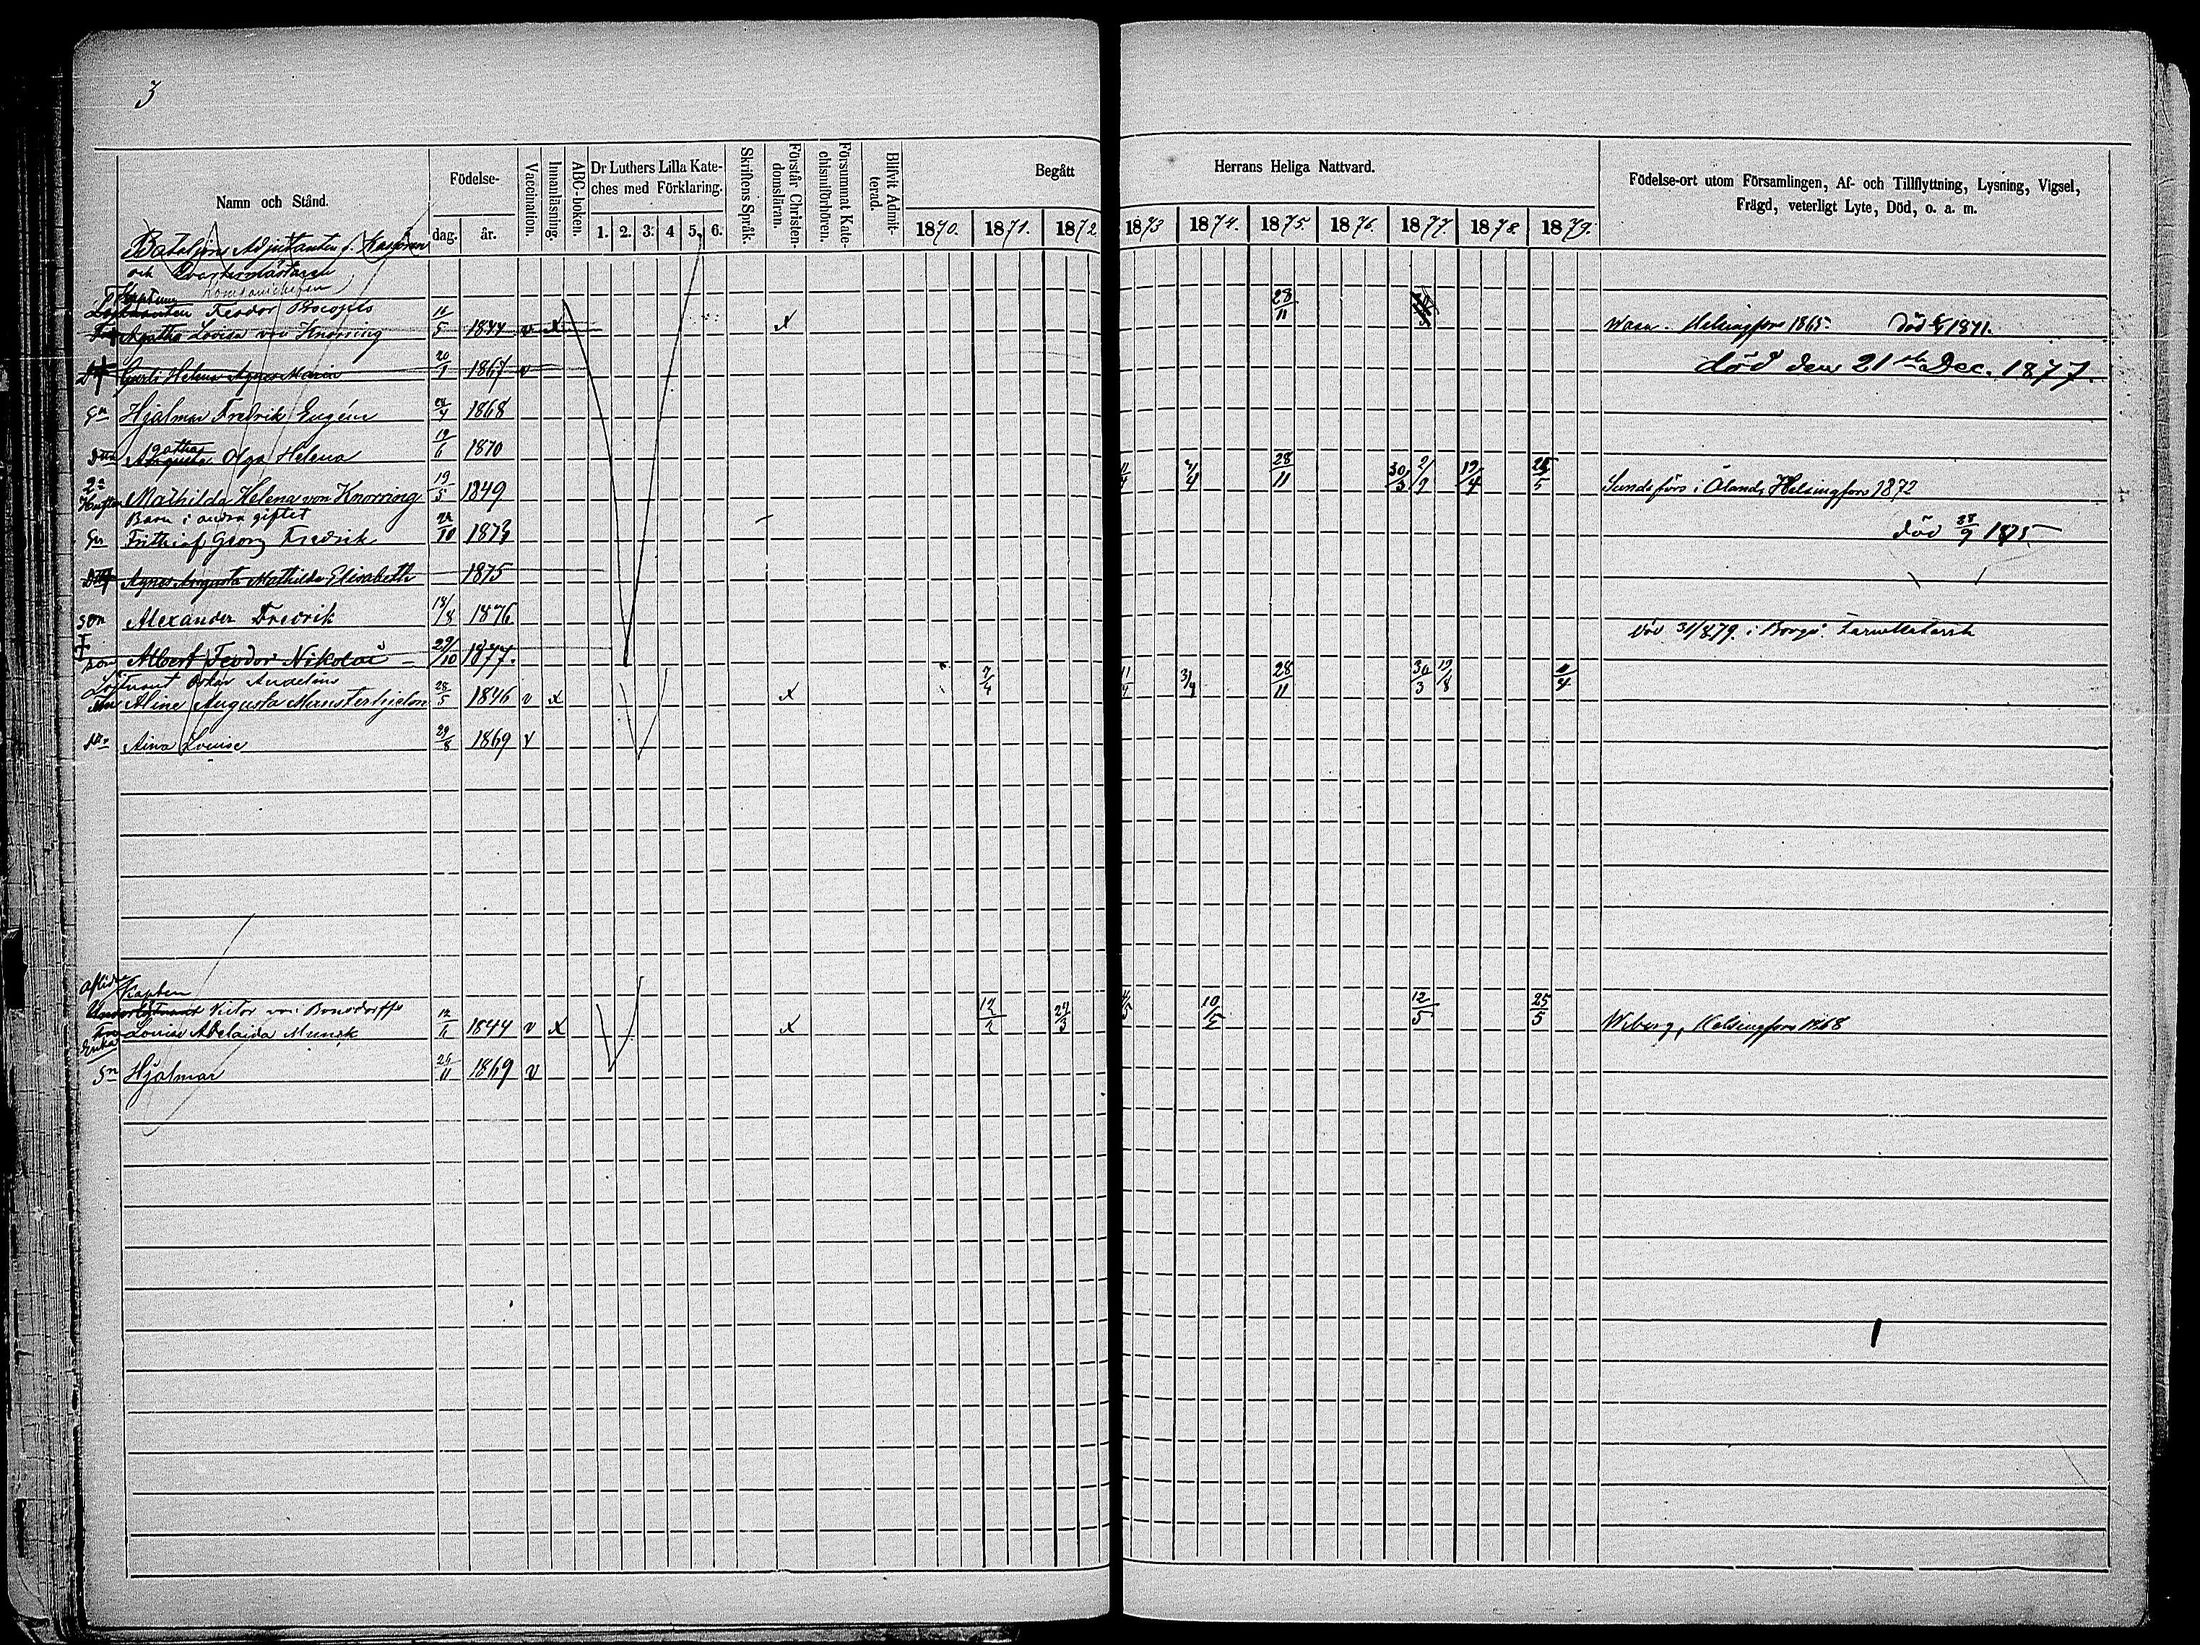 3
Namn och Stånd.
Födelse-
dag.
år.
Vaccination.
Innanläsning.
ABC-boken.
Dr Luthers Lilla Kate-
ches med Förklaring.
1. 2. 3. 4 5. 6.
Skriftens Språk.
Förstår Christen-
domsläran.
Försummat Kate-
chismiförhören.
Blifvit Admit-
terad.
Begått
1870. 1871. 1872
Herrans Heliga Nattvard.
1873 1874. 1875. 1876. 1877. 1878. 1879.
Födelse-ort utom Församlingen, Af- och Tillflyttning, Lysning, Vigsel,
Frägd, veterligt Lyte, Död, o. a. m.
Bataljons Adjutanten
och Qvartermästaren
Kompanichefen
Kapten
Löjtnanten Feodor Procopé
Agatha Lovisa von Knorring 11/5 1844 v x x Wasa. Helsingfors 1865. Död 1871.
28/11
Gerli Helena Agnes Maria 20/1 1867 v död den 21 Dec. 1877.
Sn Hjalmar Fredrik Eugén 28/4 1868
gatha
Dttr Augusta Olga Helena 19/6 1870
2a
Hustru Mathilda Helena von Knorring 19/5 1849 28/11 30/3 2/9 19/4 25/5 Sund i Åland, Helsingfors 1872
Barn i andra giftet
Sn Frithiof Georg Fredrik 28/10 1873 död 28/9 1875
Agnes Augusta Mathilda Elisabeth 1875
son Alexander Fredrik 18/8 1876
son Albert Feodor Nikolai 29/10 1877. död 31/8 79. i Borgå
Löjtnant Oskar Audelius
Aline Augusta Munsterhjelm 28/5 1846 v x x 7/4 11/4 3/4 28/11 30/3 19/8 11/4
Aina Louise 29/8 1869 v
aflid. Kapten
Underlöjtnant Victor von Bonsdorffs
Enka Louise Adelaida Munck 12/6 1844 v x x 12/2 27/3 4/5 10/5 12/5 25/5 Wiborg, Helsingfors 1868
Sn Hjalmar 26/11 1869 v